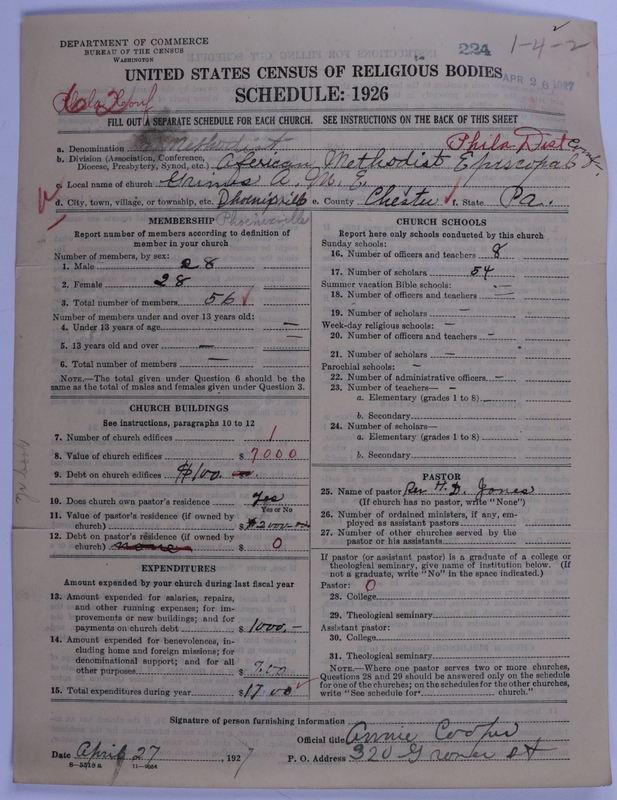 DEPARTMENT OF COMMERCE
BUREAU OF THE CENSUS
WASHINGTON
224
1-4-2
UNITED STATES CENSUS OF RELIGIOUS BODIES
APR 28 1927
SCHEDULE: 1926
FILL OUT A SEPARATE SCHEDULE FOR EACH CHURCH. SEE INSTRUCTIONS ON THE BACK OF THIS SHEET
Phila Dist Conf.
a. Denomination Methodist
b. Division (Association, Conference, Diocese, Presbytery, Synod, etc.) African Methodist Episcopal
c. Local name of church Grimes A. M. E.
d. City, town, village, or township, etc. Phoenixville e. County Chester f. State Pa.
Phoenixville
MEMBERSHIP
Report number of members according to definition of
member in your church
Number of members, by sex:
1. Male 28
2. Female 28
3. Total number of members 56
Number of members under and over 13 years old:
4. Under 13 years of age —
5. 13 years old and over —
6. Total number of members —
NOTE.—The total given under Question 6 should be the
same as the total of males and females given under Question 3.
CHURCH BUILDINGS
See instructions, paragraphs 10 to 12
7. Number of church edifices 1
8. Value of church edifices $ 7000
9. Debt on church edifices $100
10. Does church own pastor's residence Yes
Yes or No
11. Value of pastor's residence (if owned by
church) $ 2000.00
12. Debt on pastor's residence (if owned by
church) none $ 0
EXPENDITURES
Amount expended by your church during last fiscal year
13. Amount expended for salaries, repairs,
and other running expenses; for im-
provements or new buildings; and for
payments on church debt $ 1000.—
14. Amount expended for benevolences, in-
cluding home and foreign missions; for
denominational support; and for all
other purposes $
15. Total expenditures during year $ 1700
CHURCH SCHOOLS
Report here only schools conducted by this church
Sunday schools:
16. Number of officers and teachers 8
17. Number of scholars 54
Summer vacation Bible schools: —
18. Number of officers and teachers —
19. Number of scholars —
Week-day religious schools: —
20. Number of officers and teachers —
21. Number of scholars —
Parochial schools: —
22. Number of administrative officers —
23. Number of teachers— —
a. Elementary (grades 1 to 8)
b. Secondary
24. Number of scholars—
a. Elementary (grades 1 to 8)
b. Secondary
PASTOR
25. Name of pastor Rev H. D. Jones
(If church has no pastor, write "None")
26. Number of ordained ministers, if any, em-
ployed as assistant pastors
27. Number of other churches served by the
pastor or his assistants
If pastor (or assistant pastor) is a graduate of a college or
theological seminary, give name of institution below. (If
not a graduate, write "No" in the space indicated.)
Pastor: 0
28. College
29. Theological seminary
Assistant pastor:
30. College
31. Theological seminary
NOTE.—Where one pastor serves two or more churches,
Questions 28 and 29 should be answered only on the schedule
for one of the churches; on the schedules for the other churches,
write "See schedule for church."
Signature of person furnishing information
Official title Annie Cooper
Date April 27, 1927 P. O. Address 320 Grover St
8—5513a 11—9654